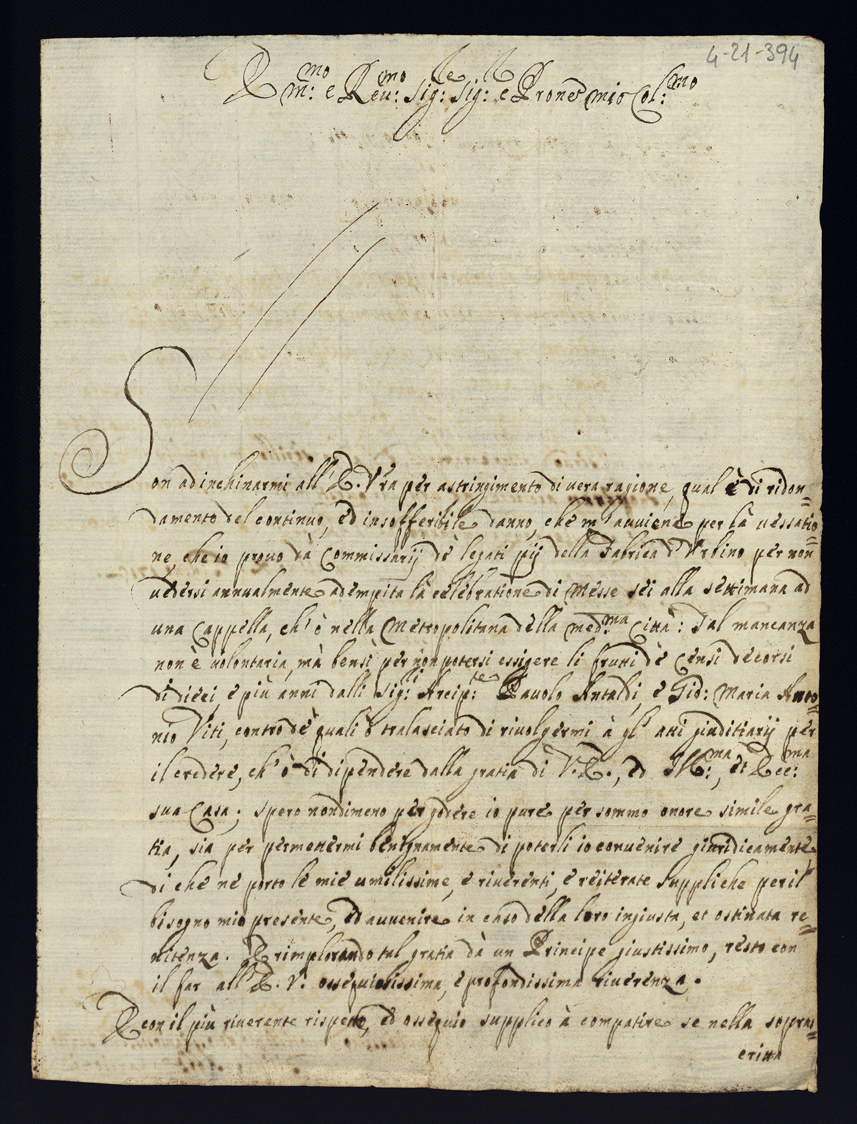 4-21-394
E.mo m: e Reu.mo Sig.re Sig: e Prone mio Col.mo
Son ad inchinarmi all' E. Vra per astringimento di vera ragione, qual è di ridon=
damento del continuo, ed insofferibile danno, che m'auuiene per la uessatio=
ne, che io prouo dà Commissarij dè legati pij della Fabrica d'Vrbino per non
uedersi annualmente adempita la celebratione di Messe sei alla settimana ad
una Cappella, ch' ò nella Metropolitana della med.ma Città: Tal mancanza
non è uolontaria, mà bensì per non potersi essigere li frutti dè Censi decorsi
di dieci, e più anni dalli Sig.li Arcip.te Pauolo Antaldi, e Gio: Maria Anto=
nio Viti, contro dè quali ò tralasciato di riuolgermi à gl' atti giuditiarij per
il credere, ch' ò di dipendere dalla gratia di V. E., ed Ill.ma, et Ecc.ma
sua Casa; spero nondimeno per godere io pure per sommo onore simile gra=
tia, sia per permettermi benignamente di poterli io conuenire giuridicamente,
di che ne porto le mie umilissime, e riuerenti, e reiterate suppliche per il
bisogno mio presente, ed auuenire in caso della loro ingiusta, et ostinata re=
nitenza. E rimplorando tal gratia dà un Principe giustissimo, resto con
il far all' E. V. ossequiosissima, e profondissima riuerenza.
E con il più riuerente rispetto, ed ossequio supplico à compatire se nella sopras=
critta